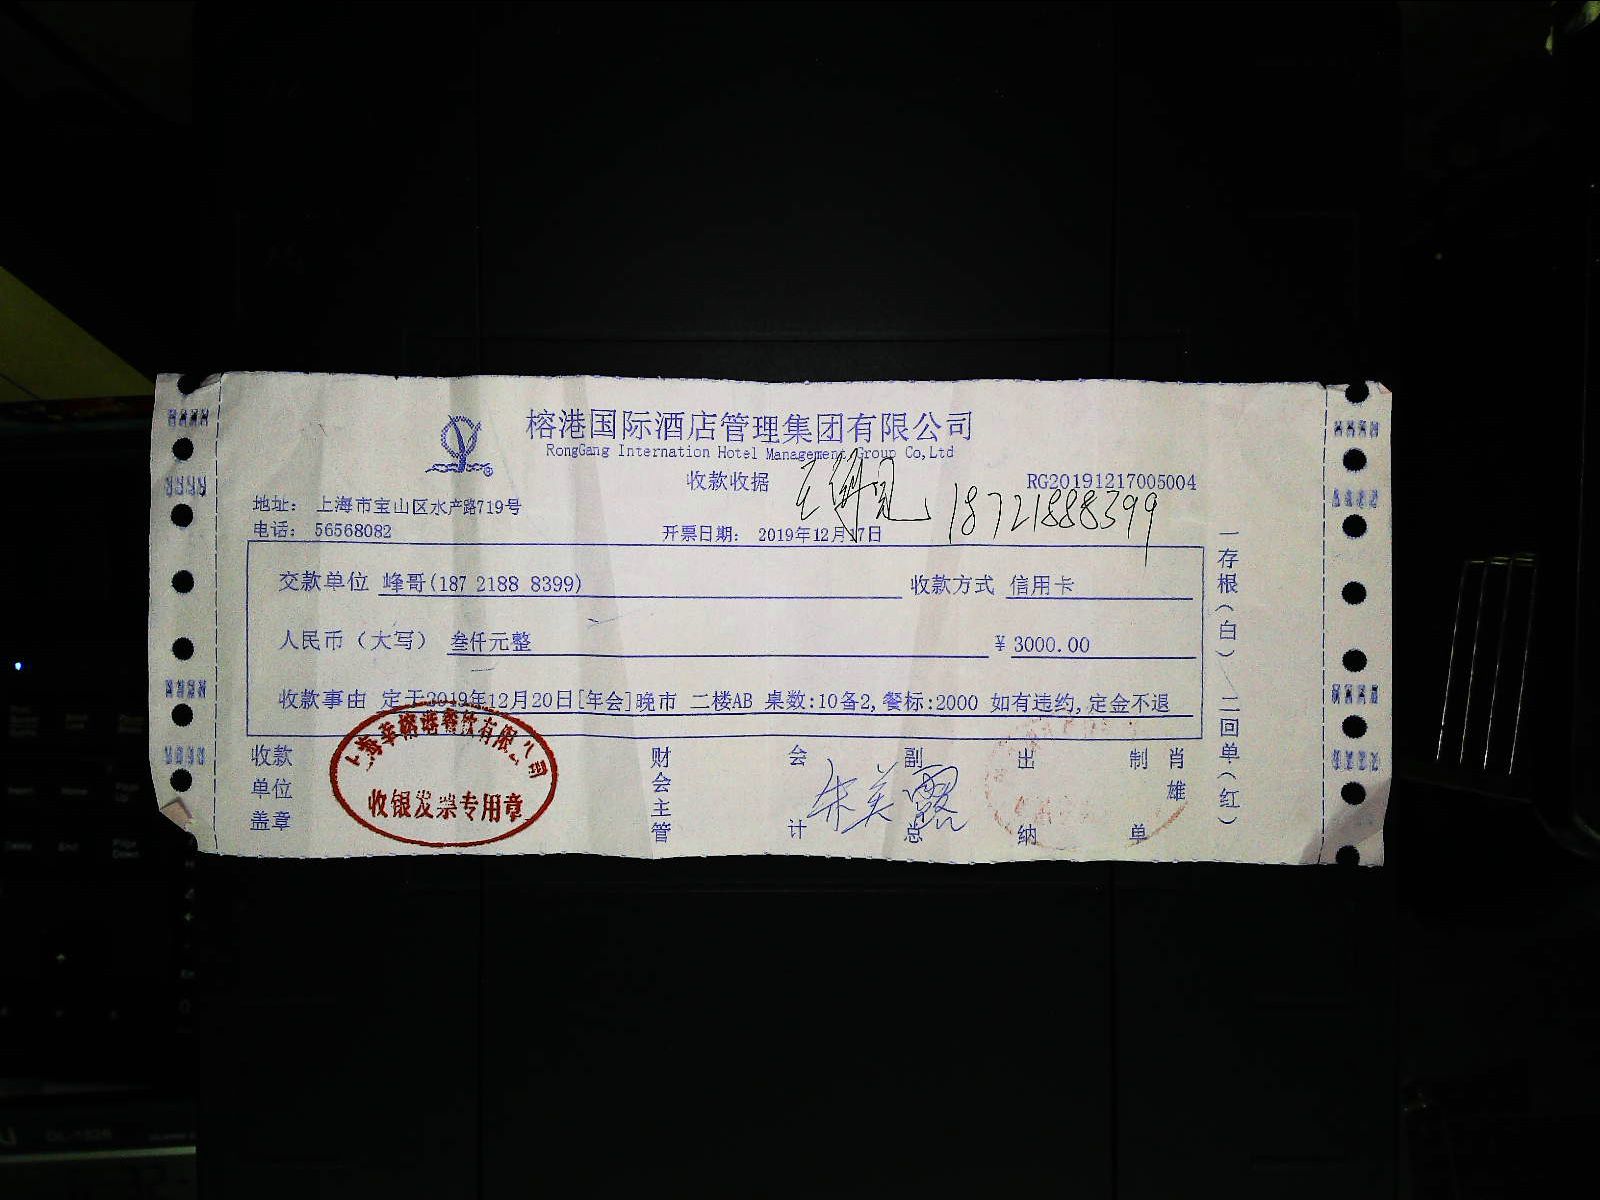 榕港国际酒店管理集团有限公司
RongGang Internation Hotel Management Group Co,Ltd
收款收据
RG20191217005004
18721888399
地址： 上海市宝山区水产路719号
电话： 56568082
开票日期： 2019年12月17日
交款单位 峰哥(187 2188 8399)
收款方式 信用卡
人民币（大写） 叁仟元整
¥ 3000.00
收款事由 定于2019年12月20日[年会]晚市 二楼AB 桌数:10备2,餐标:2000 如有违约,定金不退
收款单位盖章
收银发票专用章
财会主管
会计
朱美露
副总
出纳
制单
肖雄
一存根(白) 二回单(红)